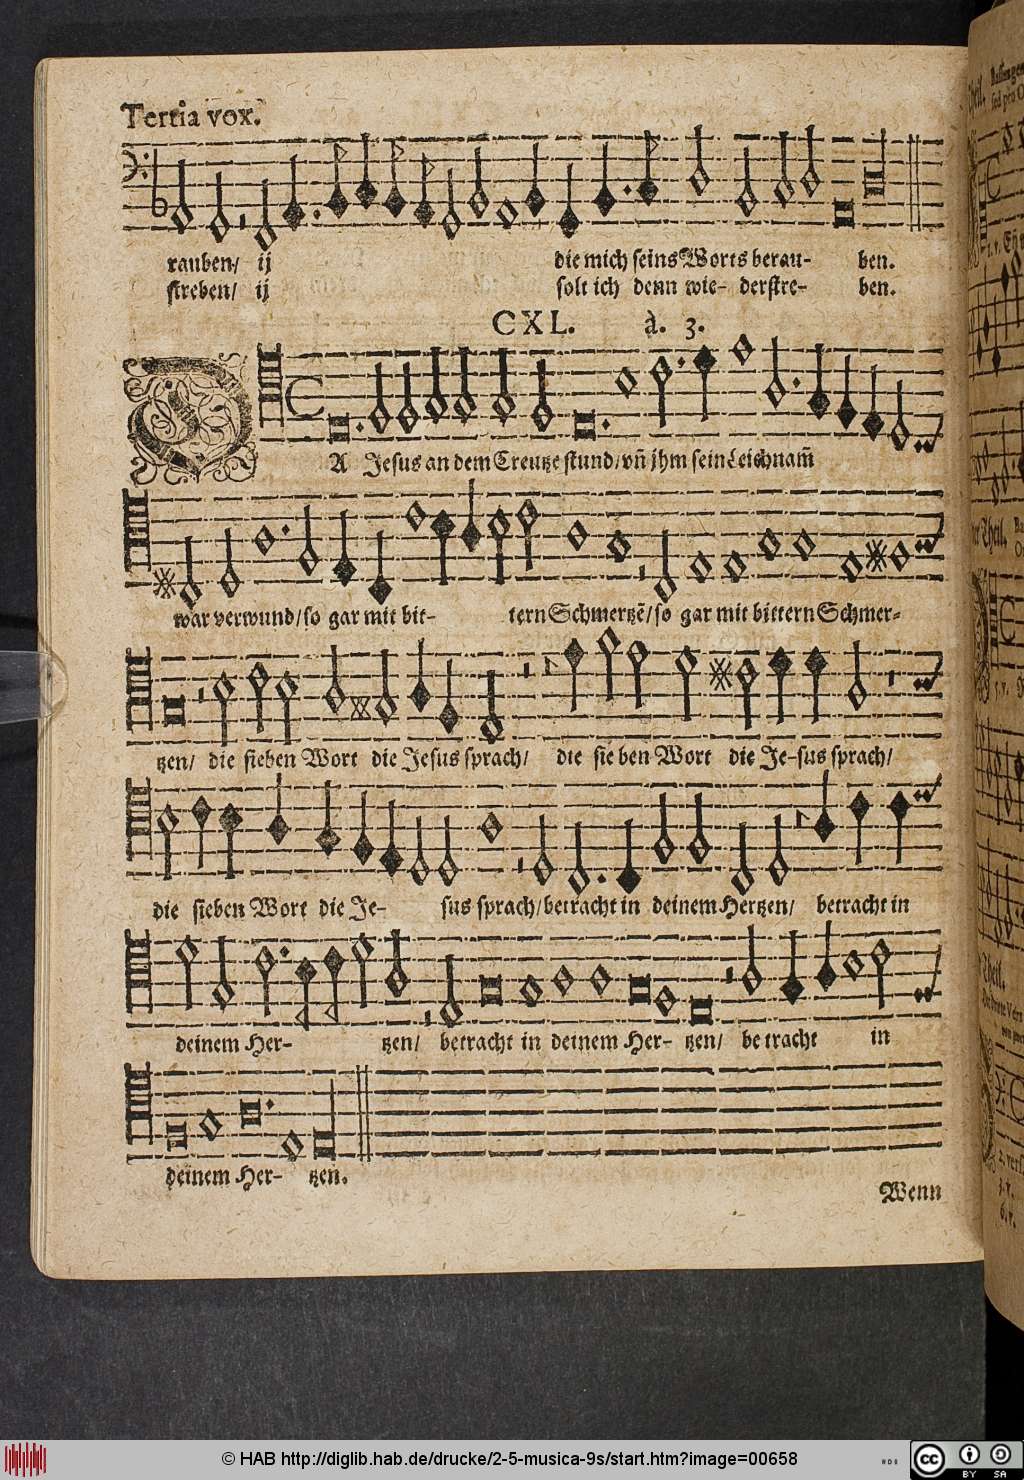 Tertia vox.
rauben/ ij die mich seins Worts berau- ben.
streben/ ij solt ich denn wie- derstre- ben.
CXL. à. 3.
DA Jesus an dem Creutze stund/ vñ jhm sein Leichnam̃
war verwund/ so gar mit bit- tern Schmertzẽ/ so gar mit bittern Schmer-
tzen/ die sieben Wort die Jesus sprach/ die sie ben Wort die Je-sus sprach/
die sieben Wort die Je- sus sprach/ betracht in deinem Hertzen/ betracht in
deinem Her- tzen/ betracht in deinem Her- tzen/ be tracht in
deinem Her- tzen.
Wenn
© HAB http://diglib.hab.de/drucke/2-5-musica-9s/start.htm?image=00658
cc BY SA